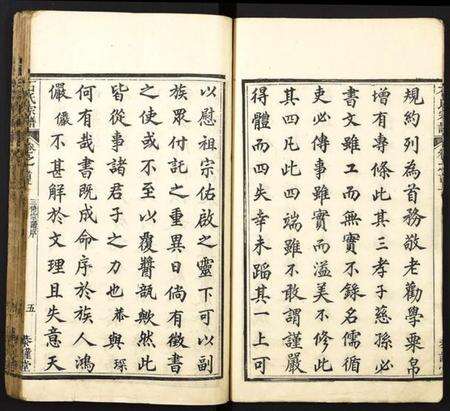 規約列為首務敬老勸學粟帛
增有專條此其三孝子慈孫必
書文雖工而無實不錄名儒循
吏必傳事雖實而溢美不修此
其四凡此四端雖不敢謂謹嚴
得體而四失幸未蹈其一上可
以慰祖宗佑啟之靈下可以副
族眾付託之重異日倘有徵書
之使或不至以覆醬瓿歟然此
皆從事諸君子之力也與琛
何有哉書既成命序於族人鴻
儼儼不甚解於文理且失意天
氏宗譜
三修宗譜序
五
堂